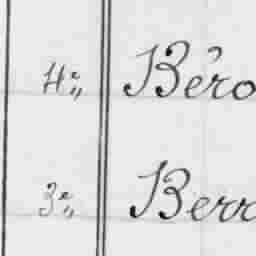 4e„ Béro
3e„ Berr